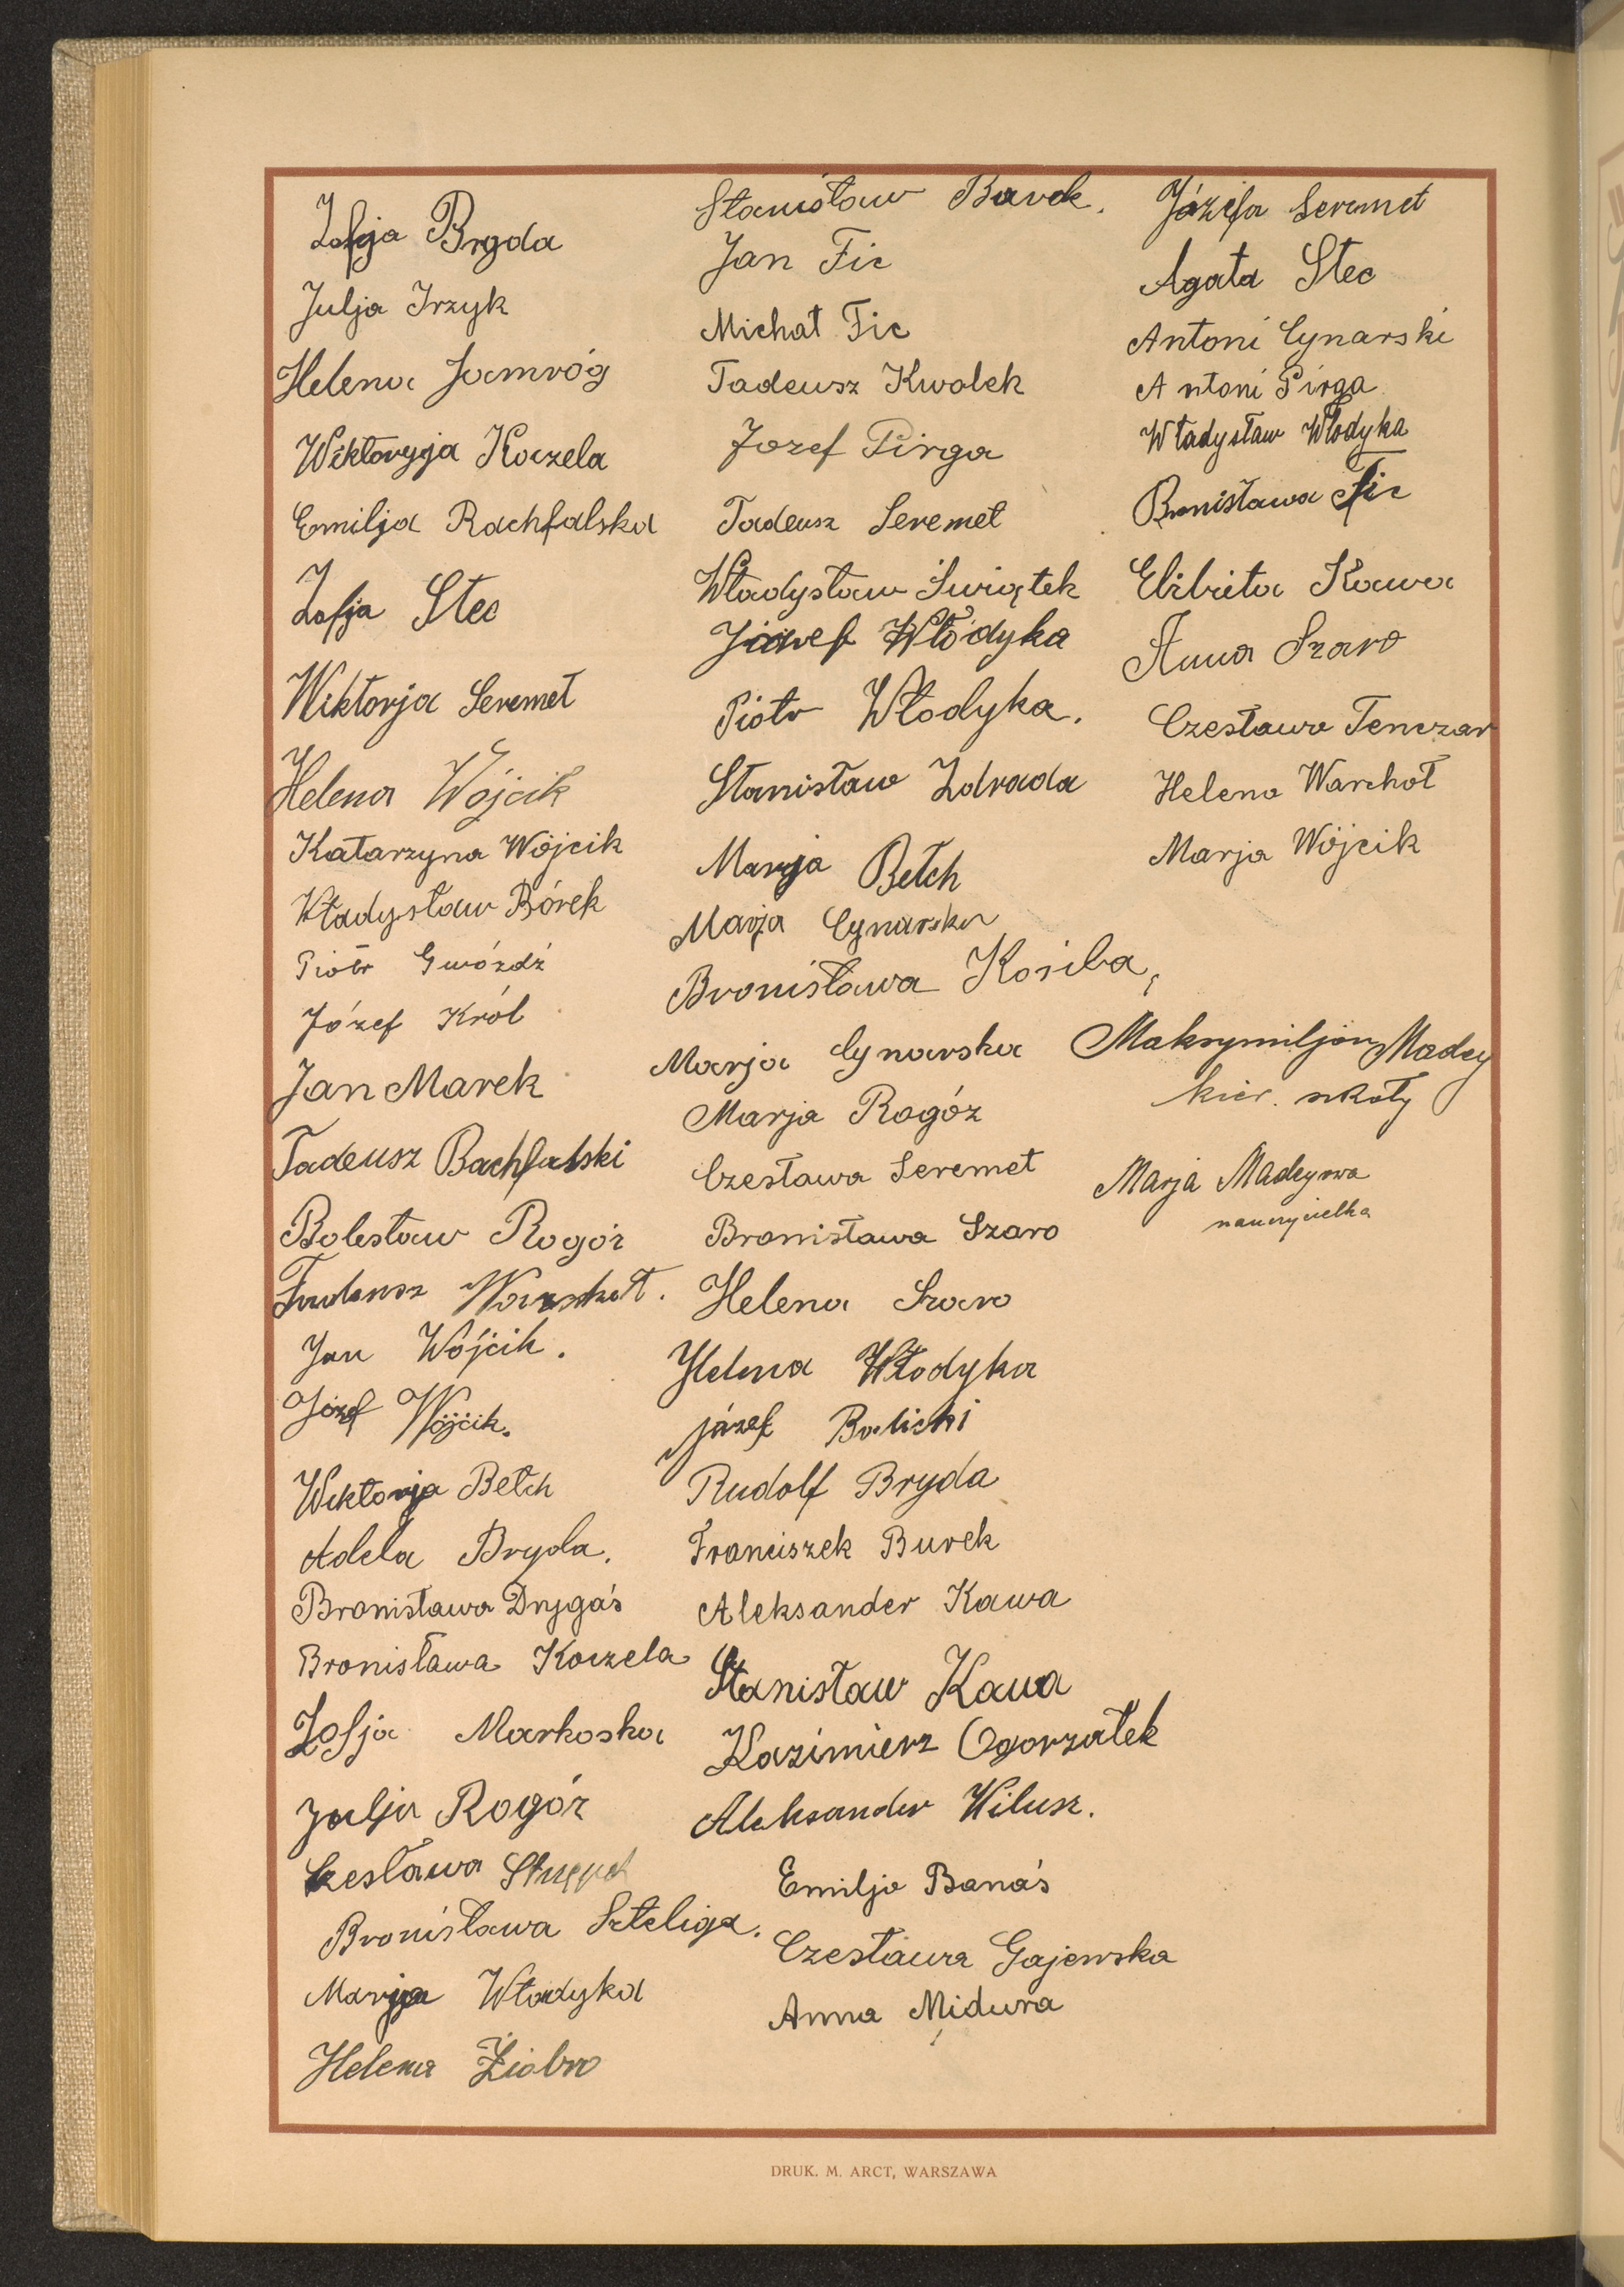 Zofja Bryda
Julja Irzyk
Helena Jamróg
Wiktoryja Koczela
Emilja Rachfalska
Zofja Stec
Wiktorja Seremet
Helena Wójcik
Katarzyna Wójcik
Władysław Bórek
Piotr Gwóźdź
Józef Król
Jan Marek
Tadeusz Rachfalski
Bolesław Rogóż
Tadeusz Warchoł.
Jan Wójcik.
Józef Wójcik.
Wiktorja Bełch
Adela Bryda.
Bronisława Drygaś
Bronisława Koczela
Zofja Markoska
Julja Rogóż
Czesława
Bronisława Szteliga.
Marja Włodyka
Helena Ziobro
Stanisław Burek.
Jan Fic
Michał Fic
Tadeusz Kwolek
Jozef Pirga
Tadeusz Seremet
Władysław Świątek
Józef Włodyka
Piotr Włodyka.
Stanisław Zdrada
Marja Bełch
Marja Cynarska
Bronisława Kosiba,
Marja Cynarska
Marja Rogóz
Czesława Seremet
Bronisława Szaro
Helena Szaro
Helena Włodyka
Józef Balicki
Rudolf Bryda
Franciszek Burek
Aleksander Kawa
Stanisław Kawa
Kazimierz Ogorzałek
Aleksander Wilusz.
Emilja Banaś
Czesława Gajewska
Anna Midura
Józefa Seremet
Agata Stec
Antoni Cynarski
Antoni Pirga
Władysław Włodyka
Bronisława Fic
Elżbieta Kawa
Anna Szaro
Czesława Tenczar
Helena Warchoł
Marja Wójcik
Maksymiljan Madey
kier. szkoły
Marja Madeyowa
nauczycielka
DRUK. M. ARCT, WARSZAWA